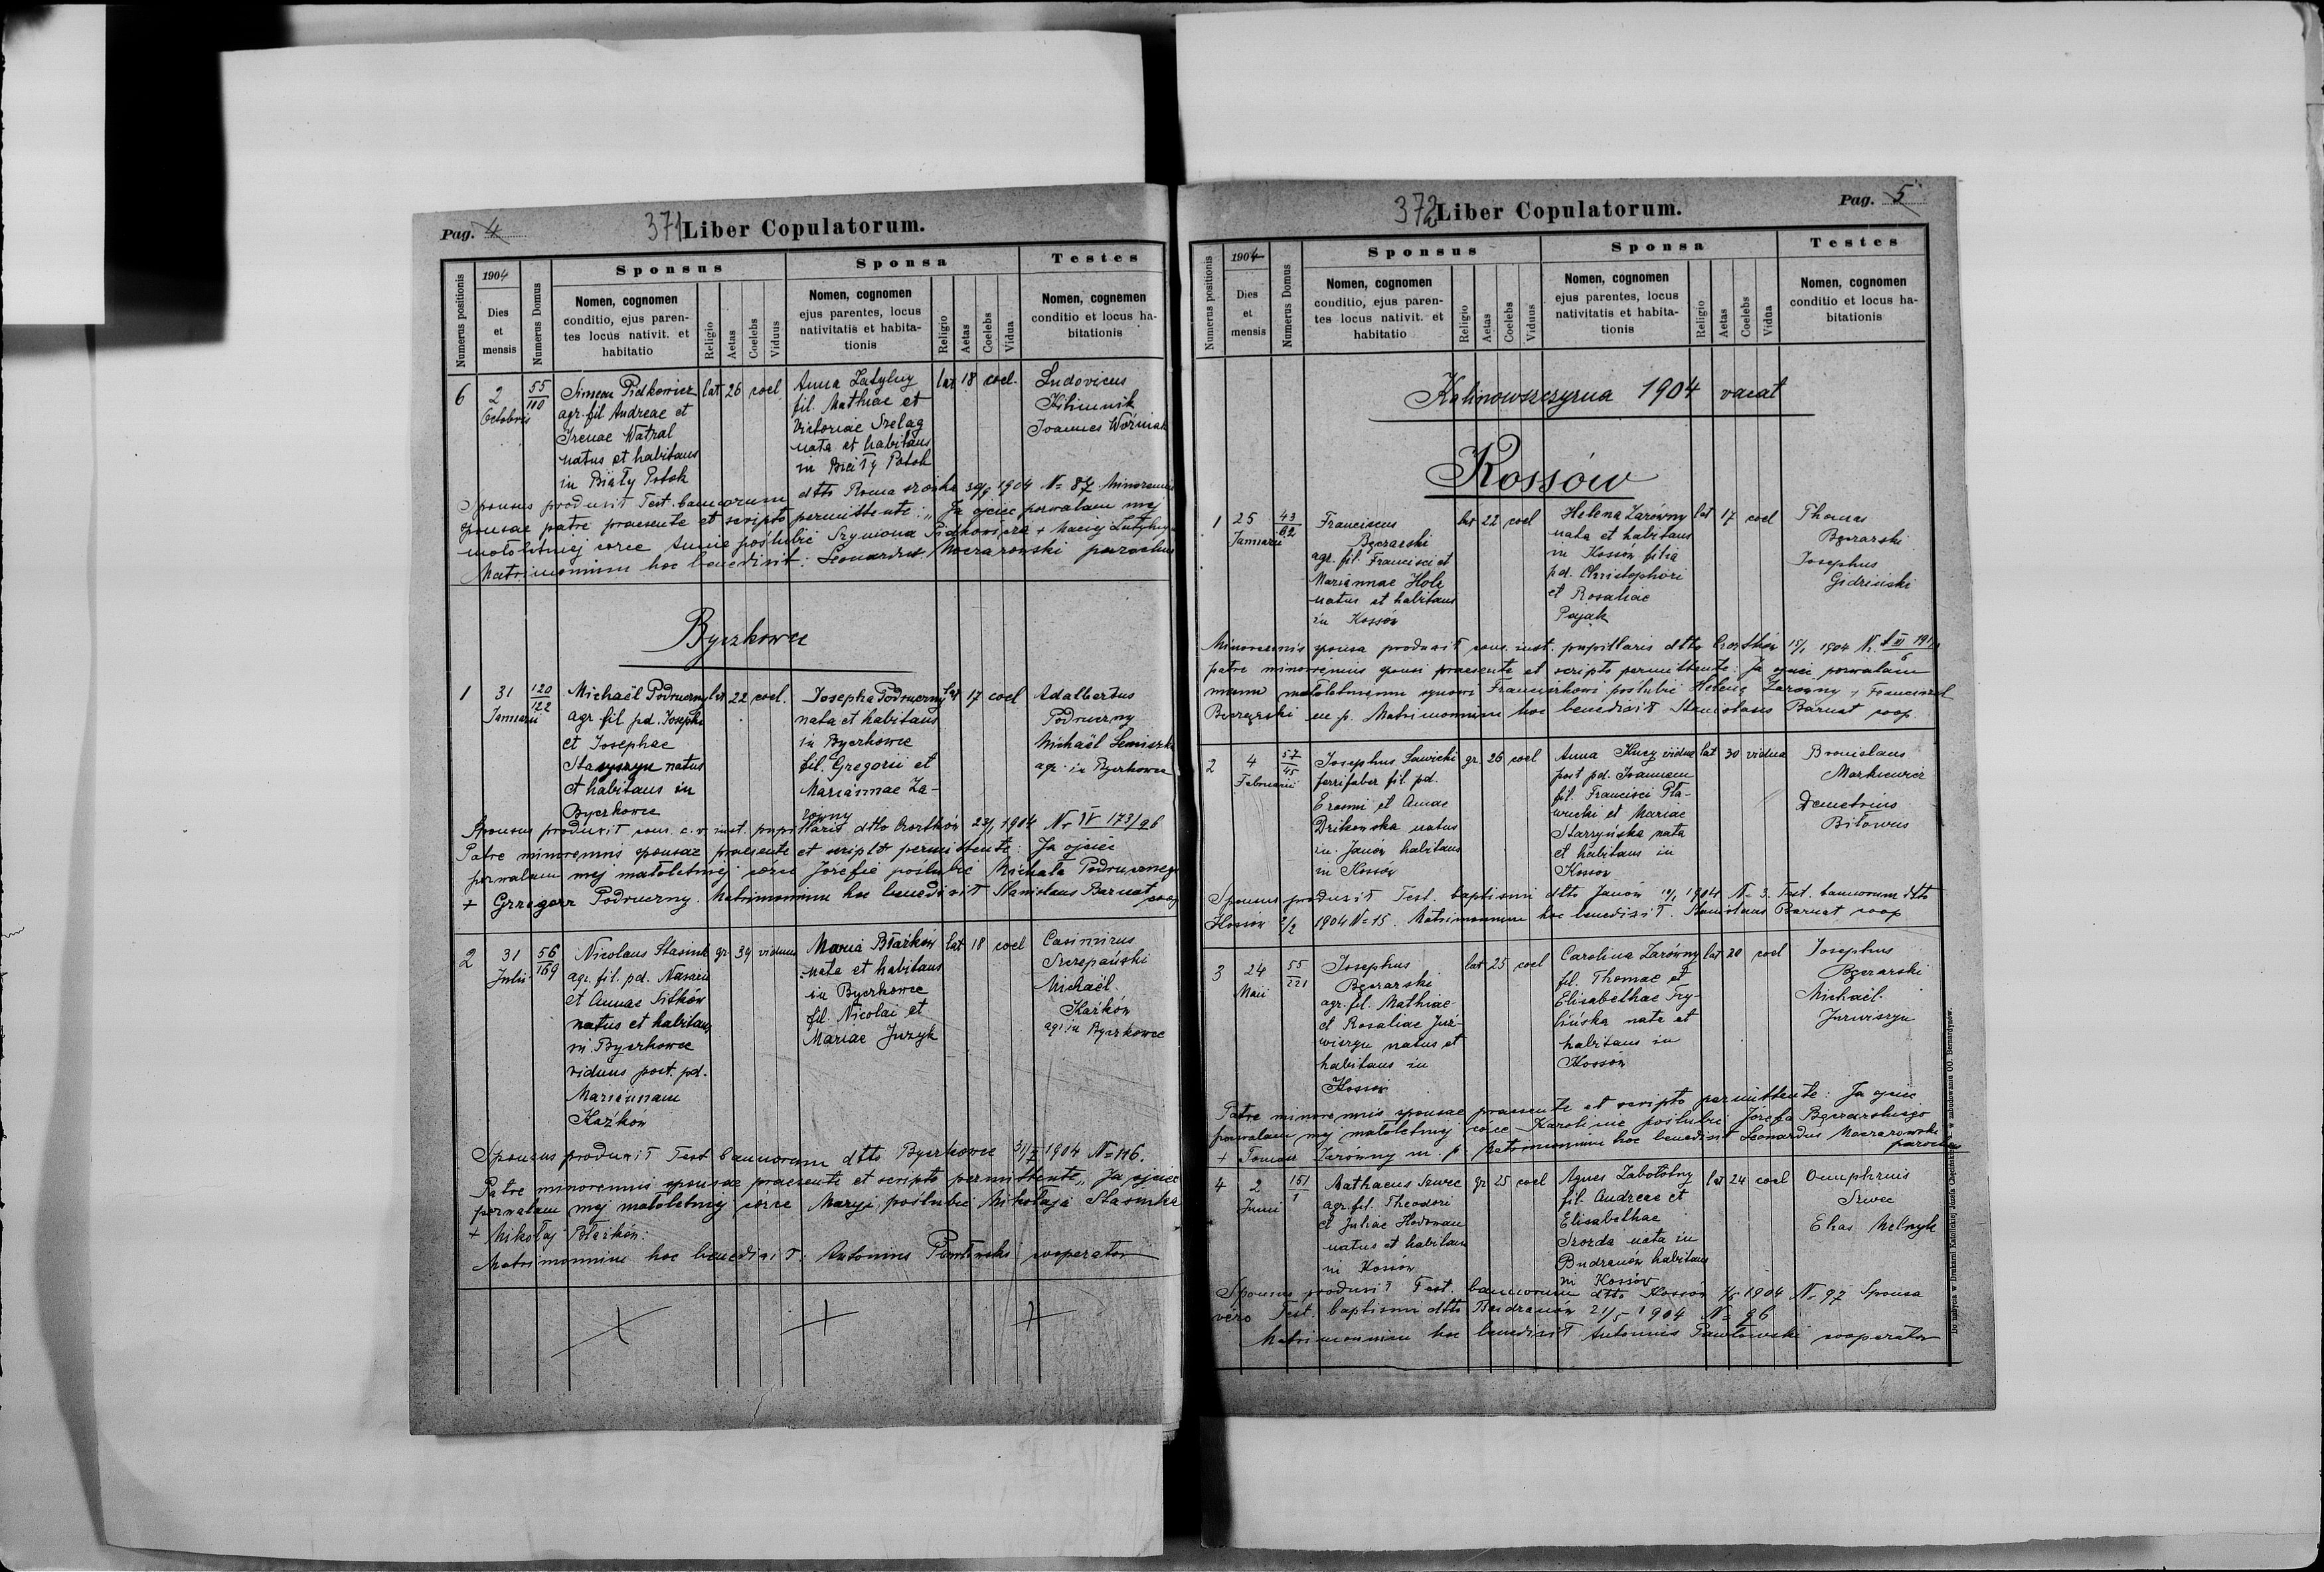 Pag. 4
371 Liber Copulatorum.
Numerus positionis
1904
Dies
et
mensis
Numerus Domus
Sponsus
Nomen, cognomen
conditio, ejus paren-
tes locus nativit. et
habitatio
Religio
Aetas
Coelebs
Viduus
Sponsa
Nomen, cognomen
ejus parentes, locus
nativitatis et habita-
tionis
Religio
Aetas
Coelebs
Vidua
Testes
Nomen, cognemen
conditio et locus ha-
bitationis
6
2
Octobris
55
110
Simeon Pidkowicz
agr. fil Andreae et
Irenae Watral
natus et habitans
in Biały Potok
lat 26 coel
Anna Łatyhy
fil. Mathiae et
Victoriae Szeląg
nata et habitans
in Biały Potok
lat 18 coel.
Ludovicus
Kilimnik
Joannes Woźniak
Sponsus produxit Test. bannorum dtto 1904 N= 87 Minorennis
sponsae patre praesente et scripto permittente: „Ja ojciec pozwalam mej
małoletniej córce Annie poślubić Szymona Pidkowicza + Maciej
Matrimonium hoc benedixit: Leonardus Moczarowski parochus
Byczkowce
1
31
Januarii
120
122
Michaël Podruczny
agr. fil pd. Josephi
et Josephae
natus
et habitans in
Byczkowce
lat 22 coel.
Josepha Podruczny
nata et habitans
in Byczkowce
fil. Gregorii et
Mariannae Za-
rowny
lat 17 coel
Adalbertus
Podruczny
Michaël Semiszka
agr. in Byczkowce
Sponsus produxit cons. c. r. inst. pupillaris dtto Czortków 23/1 1904 N= IV 173/96
Patre minorennis sponsae praesente et scripto permittente: Ja ojciec
pozwalam mej małoletniej córce Józefie poślubić Michała Podrucznego
+ Grzegorz Podruczny. Matrimonium hoc benedixit Stanislaus Barnat coop
2
31
Julii
56
169
Nicolaus Stasiuk
agr. fil. pd. Nasarii
et Annae Sitków
natus et habitans
in Byczkowce
viduus post. pd.
Mariannam
Kaźków
gr. 34 viduus
Maria Błażków
nata et habitans
in Byczkowce
fil. Nicolai et
Mariae Jurzyk
lat 18 coel
Casimirus
Szczepański
Michaël
Kaźków
agr. in Byczkowce
Sponsus produxit Test bannorum dtto Byczkowce 31/7 1904 N= 116.
Patre minorennis sponsae praesente et scripto permittente „Ja ojciec
pozwalam mej małoletniej córce Maryi poślubić Mikołaja Stasiuka
+ Mikołaj Błażków.
Matrimonium hoc benedixit: Antonius Pawłowski cooperator
Pag. 5
372 Liber Copulatorum.
Numerus positionis
1904
Dies
et
mensis
Numerus Domus
Sponsus
Nomen, cognomen
conditio, ejus paren-
tes locus nativit. et
habitatio
Religio
Aetas
Coelebs
Viduus
Sponsa
Nomen, cognomen
ejus parentes, locus
nativitatis et habita-
tionis
Religio
Aetas
Coelebs
Vidua
Testes
Nomen, cognomen
conditio et locus ha-
bitationis
Kalinowszczyzna 1904 vacat
Kossów
1
25
Januarii
43
62
Franciscus
Bęczarski
agr. fil. Francisci et
Mariannae Hole
natus et habitans
in Kossów
lat 22 coel
Helena Zarówny
nata et habitans
in Kossów filia
pd. Christophori
et Rosaliae
Pająk
lat 17 coel
Thomas
Bęczarski
Josephus
Gidziński
Minorennis sponsa produxit cons. inst. pupillaris dtto Czortków 15/1 1904
patre minorennis sponsi praesente et scripto permittente: Ja ojciec pozwalam
memu małoletniemu synowi Franciszkowi poślubić Helenę Zarowny, Franciszek
Bęczarski m. p. Matrimonium hoc benedixit Stanislaus Barnat coop.
2
4
Februarii
57
45
Josephus Sawicki
ferrifaber fil. pd.
Erasmi et Annae
Drikowska natus
in Janów habitans
in Kossów
gr. 26 coel
Anna Kucy vidua
post pd. Joannem
fil. Francisci Pła-
wucki et Mariae
Starzyńska nata
et habitans in
Kossow
lat 30 vidua
Bronislaus
Markiewicz
Demetrius
Biłowus
Sponsus produxit Test. baptismi dtto Janów 10/1 1904 N= 3. Test. bannorum dtto
Kossów 2/2 1904 N= 15. Matrimonium hoc benedixit. Stanislaus Barnat coop
3
24
Maii
55
221
Josephus
Bęczarski
agr. fil. Mathiae
et Rosaliae Jur-
wiszyn natus et
habitans in
Kossów
lat 25 coel
Carolina Zarówny
fil. Thomae et
Elisabethae Try-
lińska nata et
habitans in
Kossów
lat 20 coel
Josephus
Bęczarski
Michaël
Jurwiszyn
Patre minorennis sponsae praesente et scripto permittente: Ja ojciec
pozwalam mej małoletniej córce Karolinie poślubić Józefa Bęczarskiego
+ Tomasz Zarowny m. p. Matrimonium hoc benedixit Leonardus Moczarowski
parochus
4
2
Junii
151
1
Mathaeus Szwec
agr. fil. Theodori
et Juliae Hodowan
natus et habitans
in Kossów
gr 25 coel
Agnes Zabołotny
fil. Andreae et
Elisabethae
Szozda nata in
Budzanów habitans
in Kossów
lat 24 coel
Onuphrius
Szwec
Elias Melnyk
Sponsus produxit Test. bannorum dtto Kossów 1/6 1904 N= 97 Sponsa
vero Test. baptismi dtto Budzanów 21/5 1904 N= 96
Matrimonium hoc benedixit Antonius Pawłowski cooperator
Do nabycia w Drukarni Katolickiej Józefa Chęcińskiego, w zabudowaniu OO. Bernardynów.